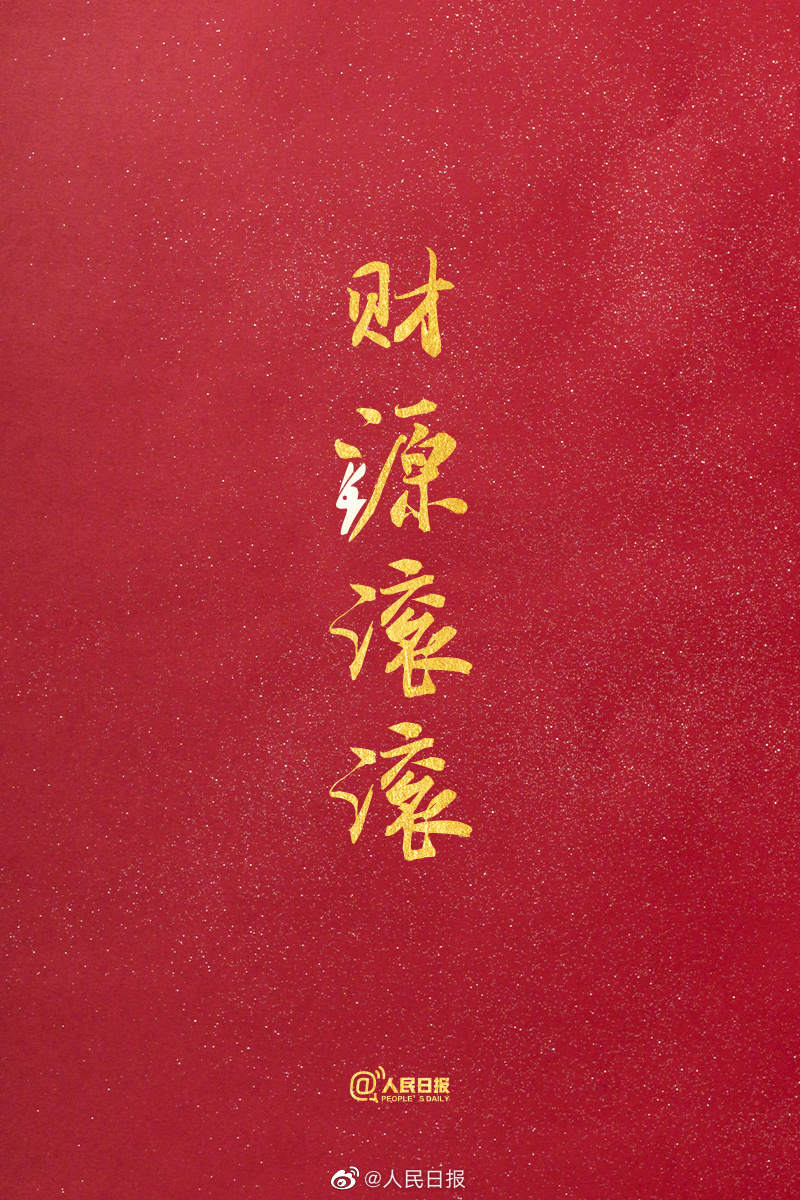 财源滚滚
@人民日报
PEOPLE'S DAILY
@人民日报